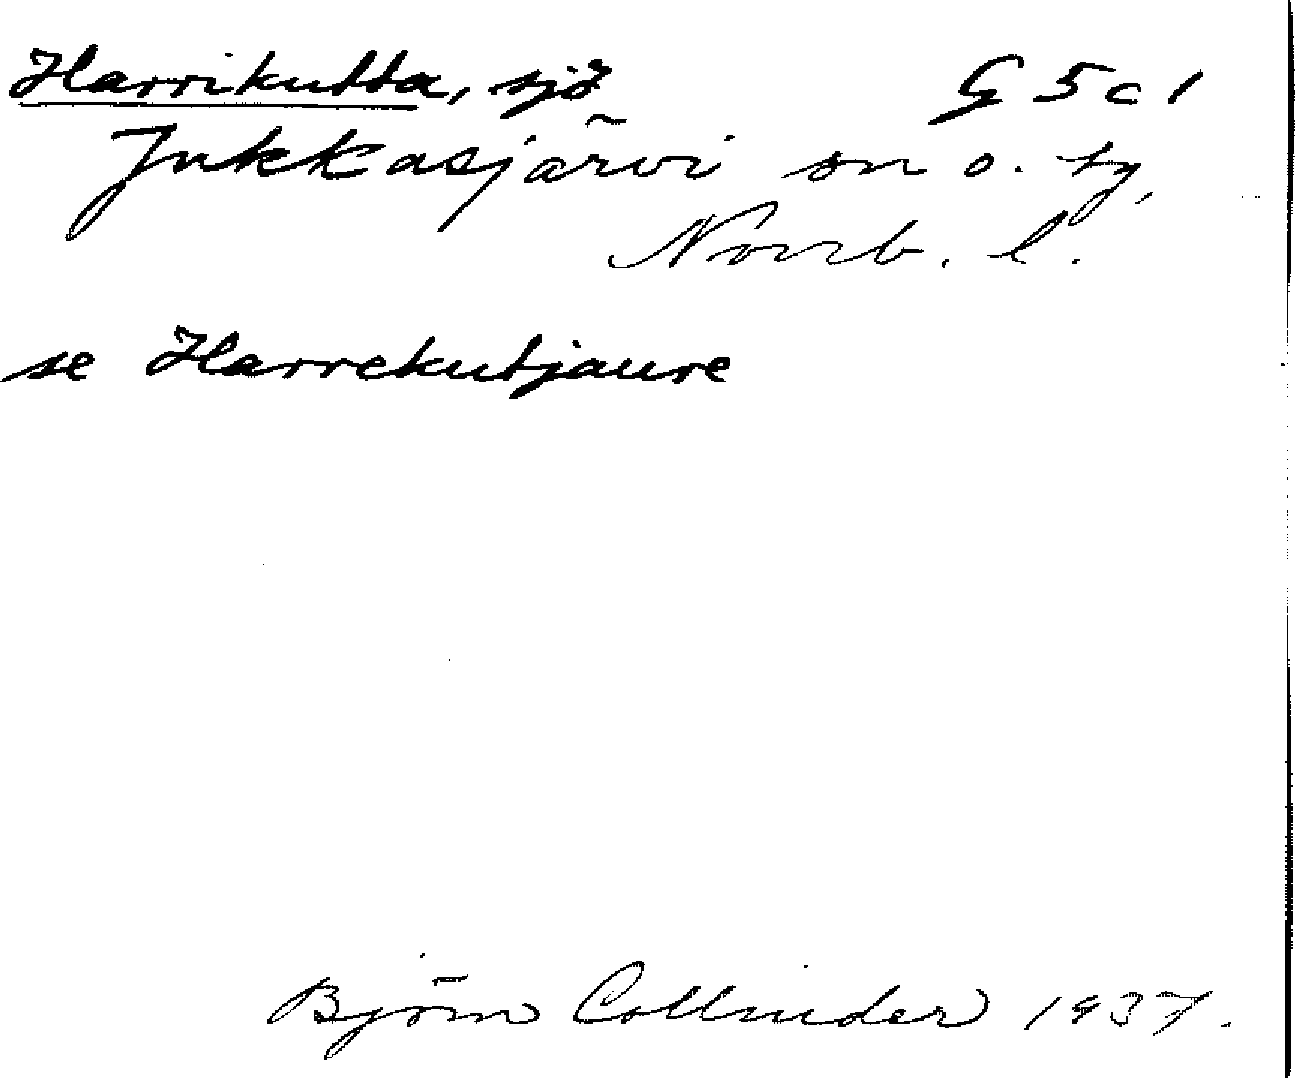 Harrikutta, sjö G 5 c 1
Jukkasjärvi sn o. tg,
Norrb. l.
se Harrekutjaure
Björn Collinder 1937.